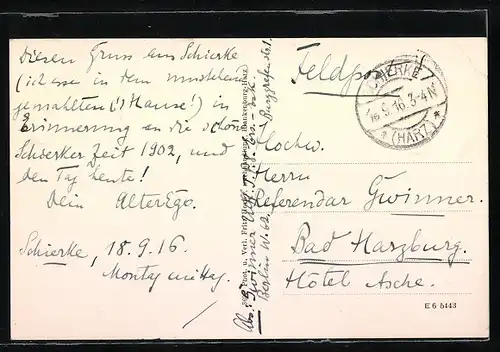 Diesen Gruss aus Schierke
(ich esse in dem umstehend
gemahlten (!) Hause!) in
Erinnerung an die schöne
Schierker Zeit 1902, und
den Tag heute!
Dein AlterEgo.
Schierke, 18.9.16
Montag mittag.
Feldpost
SCHIERKE
18.9.16.3-4N
* (HARZ) *
Hochw.
Herrn
Referendar Gwinner.
Bad Harzburg.
Hôtel Asche.
E 6 5443
Abs: Gwinner
Berlin W. 62.